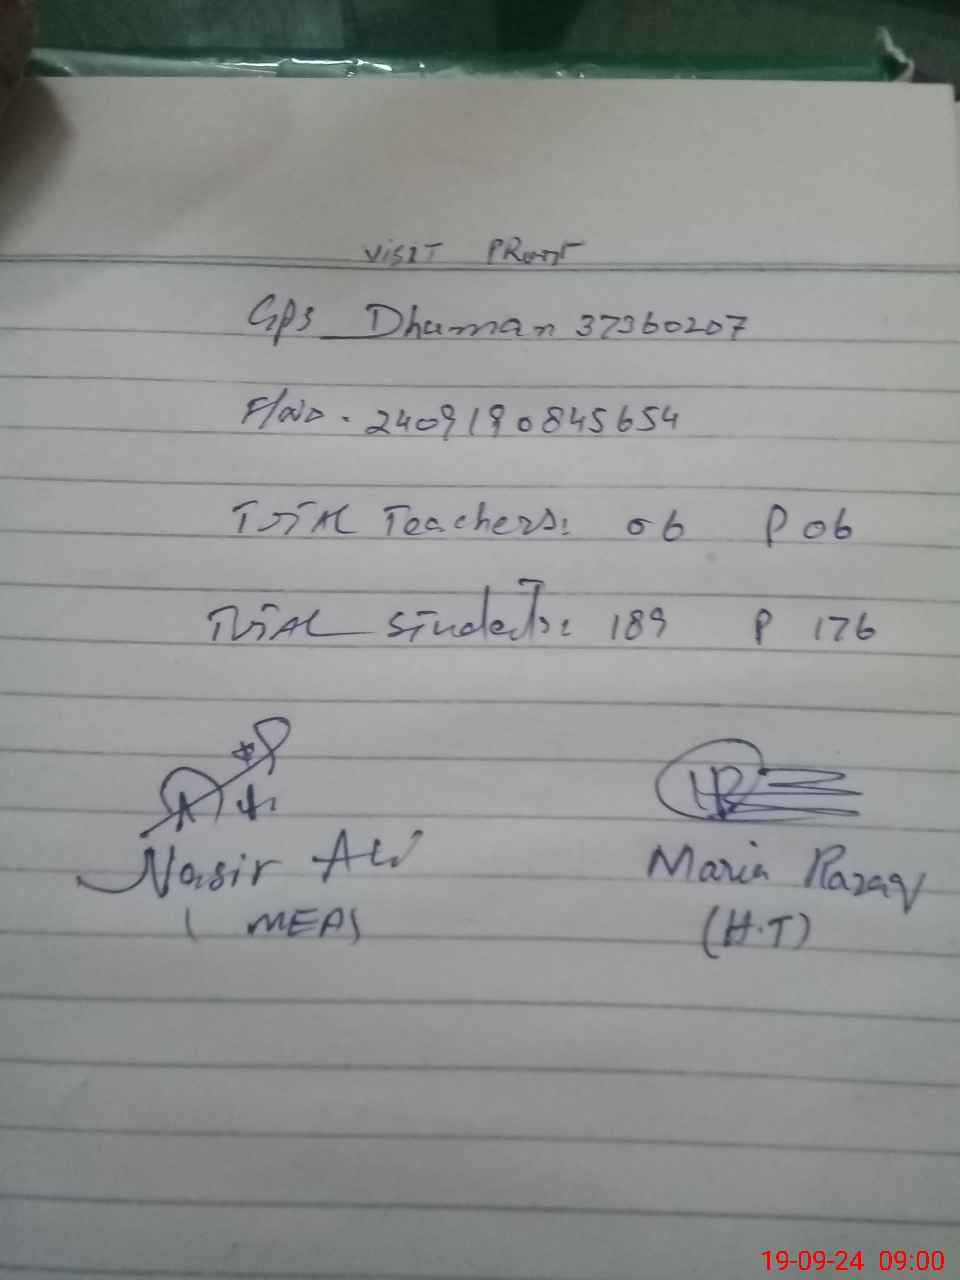 VISIT PRoof
GPS Dhuman 37360207
F/No. 2409190845654
Total Teachers: 06 P 06
Total Students: 189 P 176
Nasir Ali Maria Razaq
( MEA) (H.T)
19-09-24 09:00